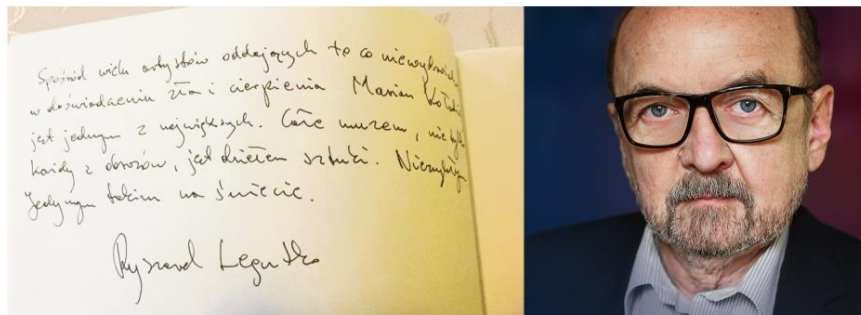 Spośród wielu artystów oddających to co niewysłowione
w doświadczeniu zła i cierpienia Marian Kołodziej
jest jednym z największych. Całe muzeum, nie tylko
każdy z obrazów, jest dziełem sztuki. Niezwykłym
Jedynym takim na świecie.
Ryszard Legutko